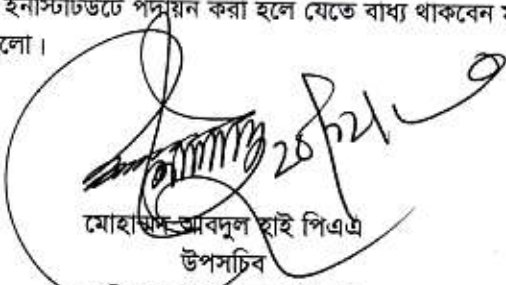 ইনস্টিটিউটে পদায়ন করা হলে যেতে বাধ্য থাকবেন
লো।
মোহাম্মদ আবদুল হাই পিএএ
উপসচিব